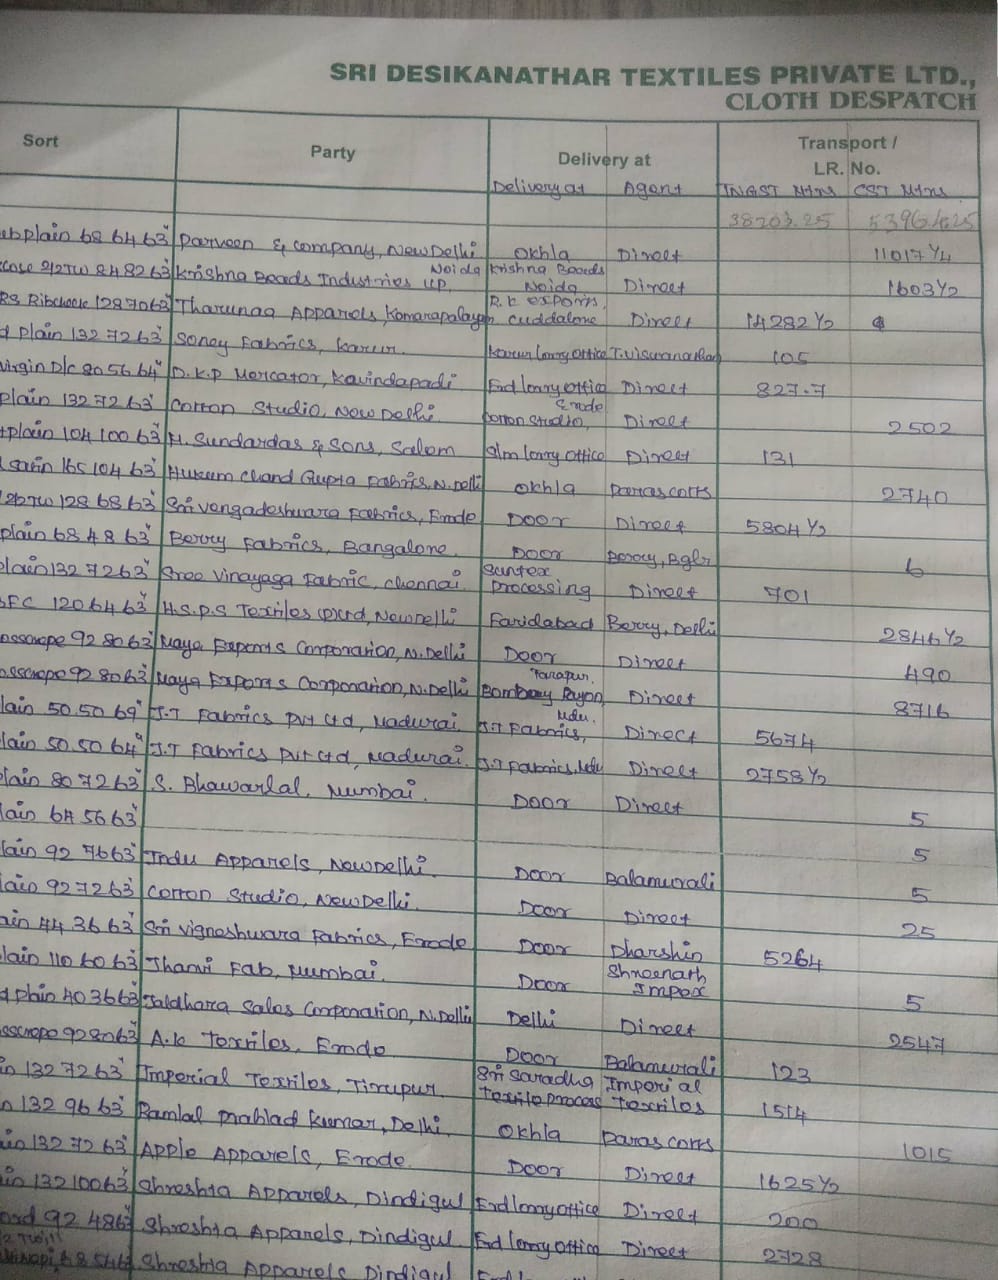 SRI DESIKANATHAR TEXTILES PRIVATE LTD.,
CLOTH DESPATCH
Sort Party Delivery at Transport / LR. No.
Delivery at Agent TNGST Mtrs CST Mtrs
38203.25 53964.25
plain 68 64 63" Parveen & Company, New Delhi Okhla Direct 11017 1/2
84 82 63" Krishna Beads Industries LLP, Noida Krishna Beads Noida Direct 1603 1/2
RS Ribcheck 128 70 63" Tharunaa Apparels, Komarapalayam R.K exports, Cuddalore Direct 14282 1/2
d plain 132 72 63" Soney Fabrics, Karur. Karur lorry office T. Viswanathan 105
virgin D/c 80 56 64" D.K.P Mercator, Kavindapadi Erd lorry office Direct 827.7
plain 132 72 63" Cotton Studio, New Delhi Cotton Studio, Erode Direct 2502
plain 104 100 63" M. Sundardas & Sons, Salem Slm lorry office Direct 131
satin 165 104 63" Hukum Chand Gupta Fabrics, N. Delhi Okhla Paras corts 2740
128 68 63" Sri Vengadeshwara Fabrics, Erode Door Direct 5804 1/2
plain 68 48 63" Berry Fabrics, Bangalore. Door Berry, Bglr 6
plain 132 72 63" Sree Vinayaga Fabric, Chennai. Suntex Processing Direct 701
SFC 120 64 63" H.S.P.S Textiles (P) Ltd, New Delhi Faridabad Berry, Delhi 2846 1/2
92 80 63" Maya Exports Corporation, N. Delhi Door Direct 490
92 80 63" Maya Exports Corporation, N. Delhi Tarapur. Bombay Rayon Direct 8716
lain 50 50 69" J.T Fabrics Pvt Ltd, Madurai. J.T Fabrics, Mdu. Direct 5674
lain 50 50 64" J.T Fabrics Pvt Ltd, Madurai. J.T Fabrics, Mdu Direct 2758 1/2
lain 80 72 63" S. Bhawarlal, Mumbai. Door Direct 5
lain 64 56 63" 5
lain 92 76 63" Indu Apparels, New Delhi. Door Balamurali 5
lain 92 72 63" Cotton Studio, New Delhi. Door Direct 25
ain 44 36 63" Sri Vigneshwara Fabrics, Erode Door Dharshin 5264
lain 110 60 63" Thanvi Fab, Mumbai. Door Shreenath Impex 5
d plain 40 36 63" Jaldhara Sales Corporation, N. Delhi Delhi Direct 2547
92 80 63" A.K Textiles, Erode Door Balamurali 123
in 132 72 63" Imperial Textiles, Tirupur Sri Saradha Textile Process Imperial Textiles 1514
n 132 96 63" Ramlal Prahlad Kumar, Delhi. Okhla Paras corts 1015
ain 132 72 63" Apple Apparels, Erode Door Direct 1625 1/2
in 132 100 63" Shreshta Apparels, Dindigul Erd lorry office Direct 200
ord 92 48 63" Shreshta Apparels, Dindigul Erd lorry office Direct 2728
Shreshta Apparels Dindigul